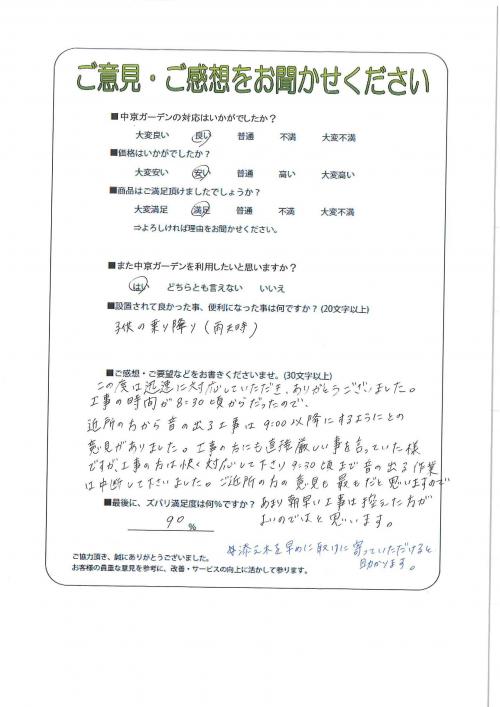 ご意見・ご感想をお聞かせください
■中京ガーデンの対応はいかがでしたか?
大変良い 良い 普通 不満 大変不満
■価格はいかがでしたか?
大変安い 安い 普通 高い 大変高い
■商品はご満足頂けましたでしょうか?
大変満足 満足 普通 不満 大変不満
⇒よろしければ理由をお聞かせください。
■また中京ガーデンを利用したいと思いますか?
はい どちらとも言えない いいえ
■設置されて良かった事、便利になった事は何ですか?(20文字以上)
子供の乗り降り(雨天時)
■ご感想・ご要望などをお書きくださいませ。(30文字以上)
この度は迅速に対応していただき、ありがとうございました。
工事の時間が8:30頃からだったので、
近所の方から音の出る工事は9:00以降にするようにとの
意見がありました。工事の方にも直接厳しい事を言っていた様
ですが、工事の方は快く対応して下さり9:30頃まで音の出る作業
は中断して下さいました。ご近所の方の意見も最もだと思いますので
あまり朝早い工事は控えた方が
よいのではと思います。
■最後に、ズバリ満足度は何%ですか?
90%
#添え木を早めに取りに寄っていただけると
助かります。
ご協力頂き、誠にありがとうございました。
お客様の貴重な意見を参考に、改善・サービスの向上に活かして参ります。